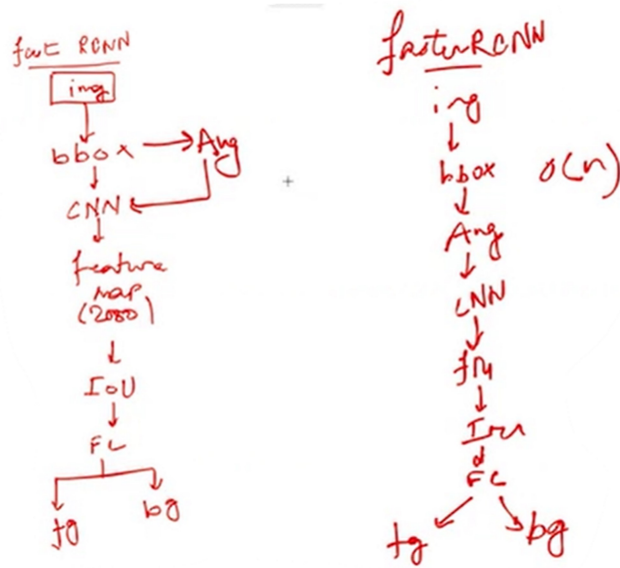 fast RCNN
img
bbox
Aug
CNN
feature
map
(2000)
IoU
FC
fg
bg
faster RCNN
img
bbox
O(n)
Aug
CNN
fM
IoU
FC
fg
bg